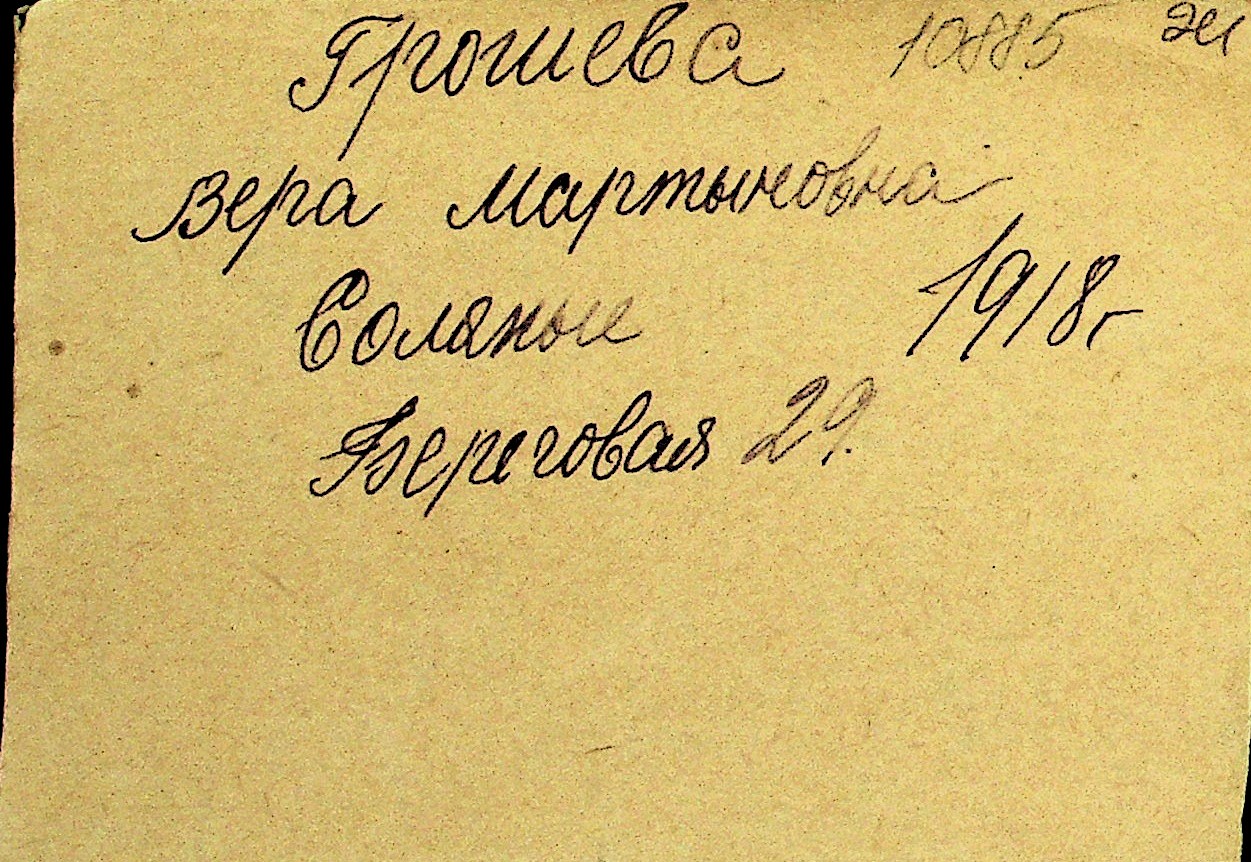 Грошева 10885
Вера Мартыновна
Соляные 1918г
Береговая 29.